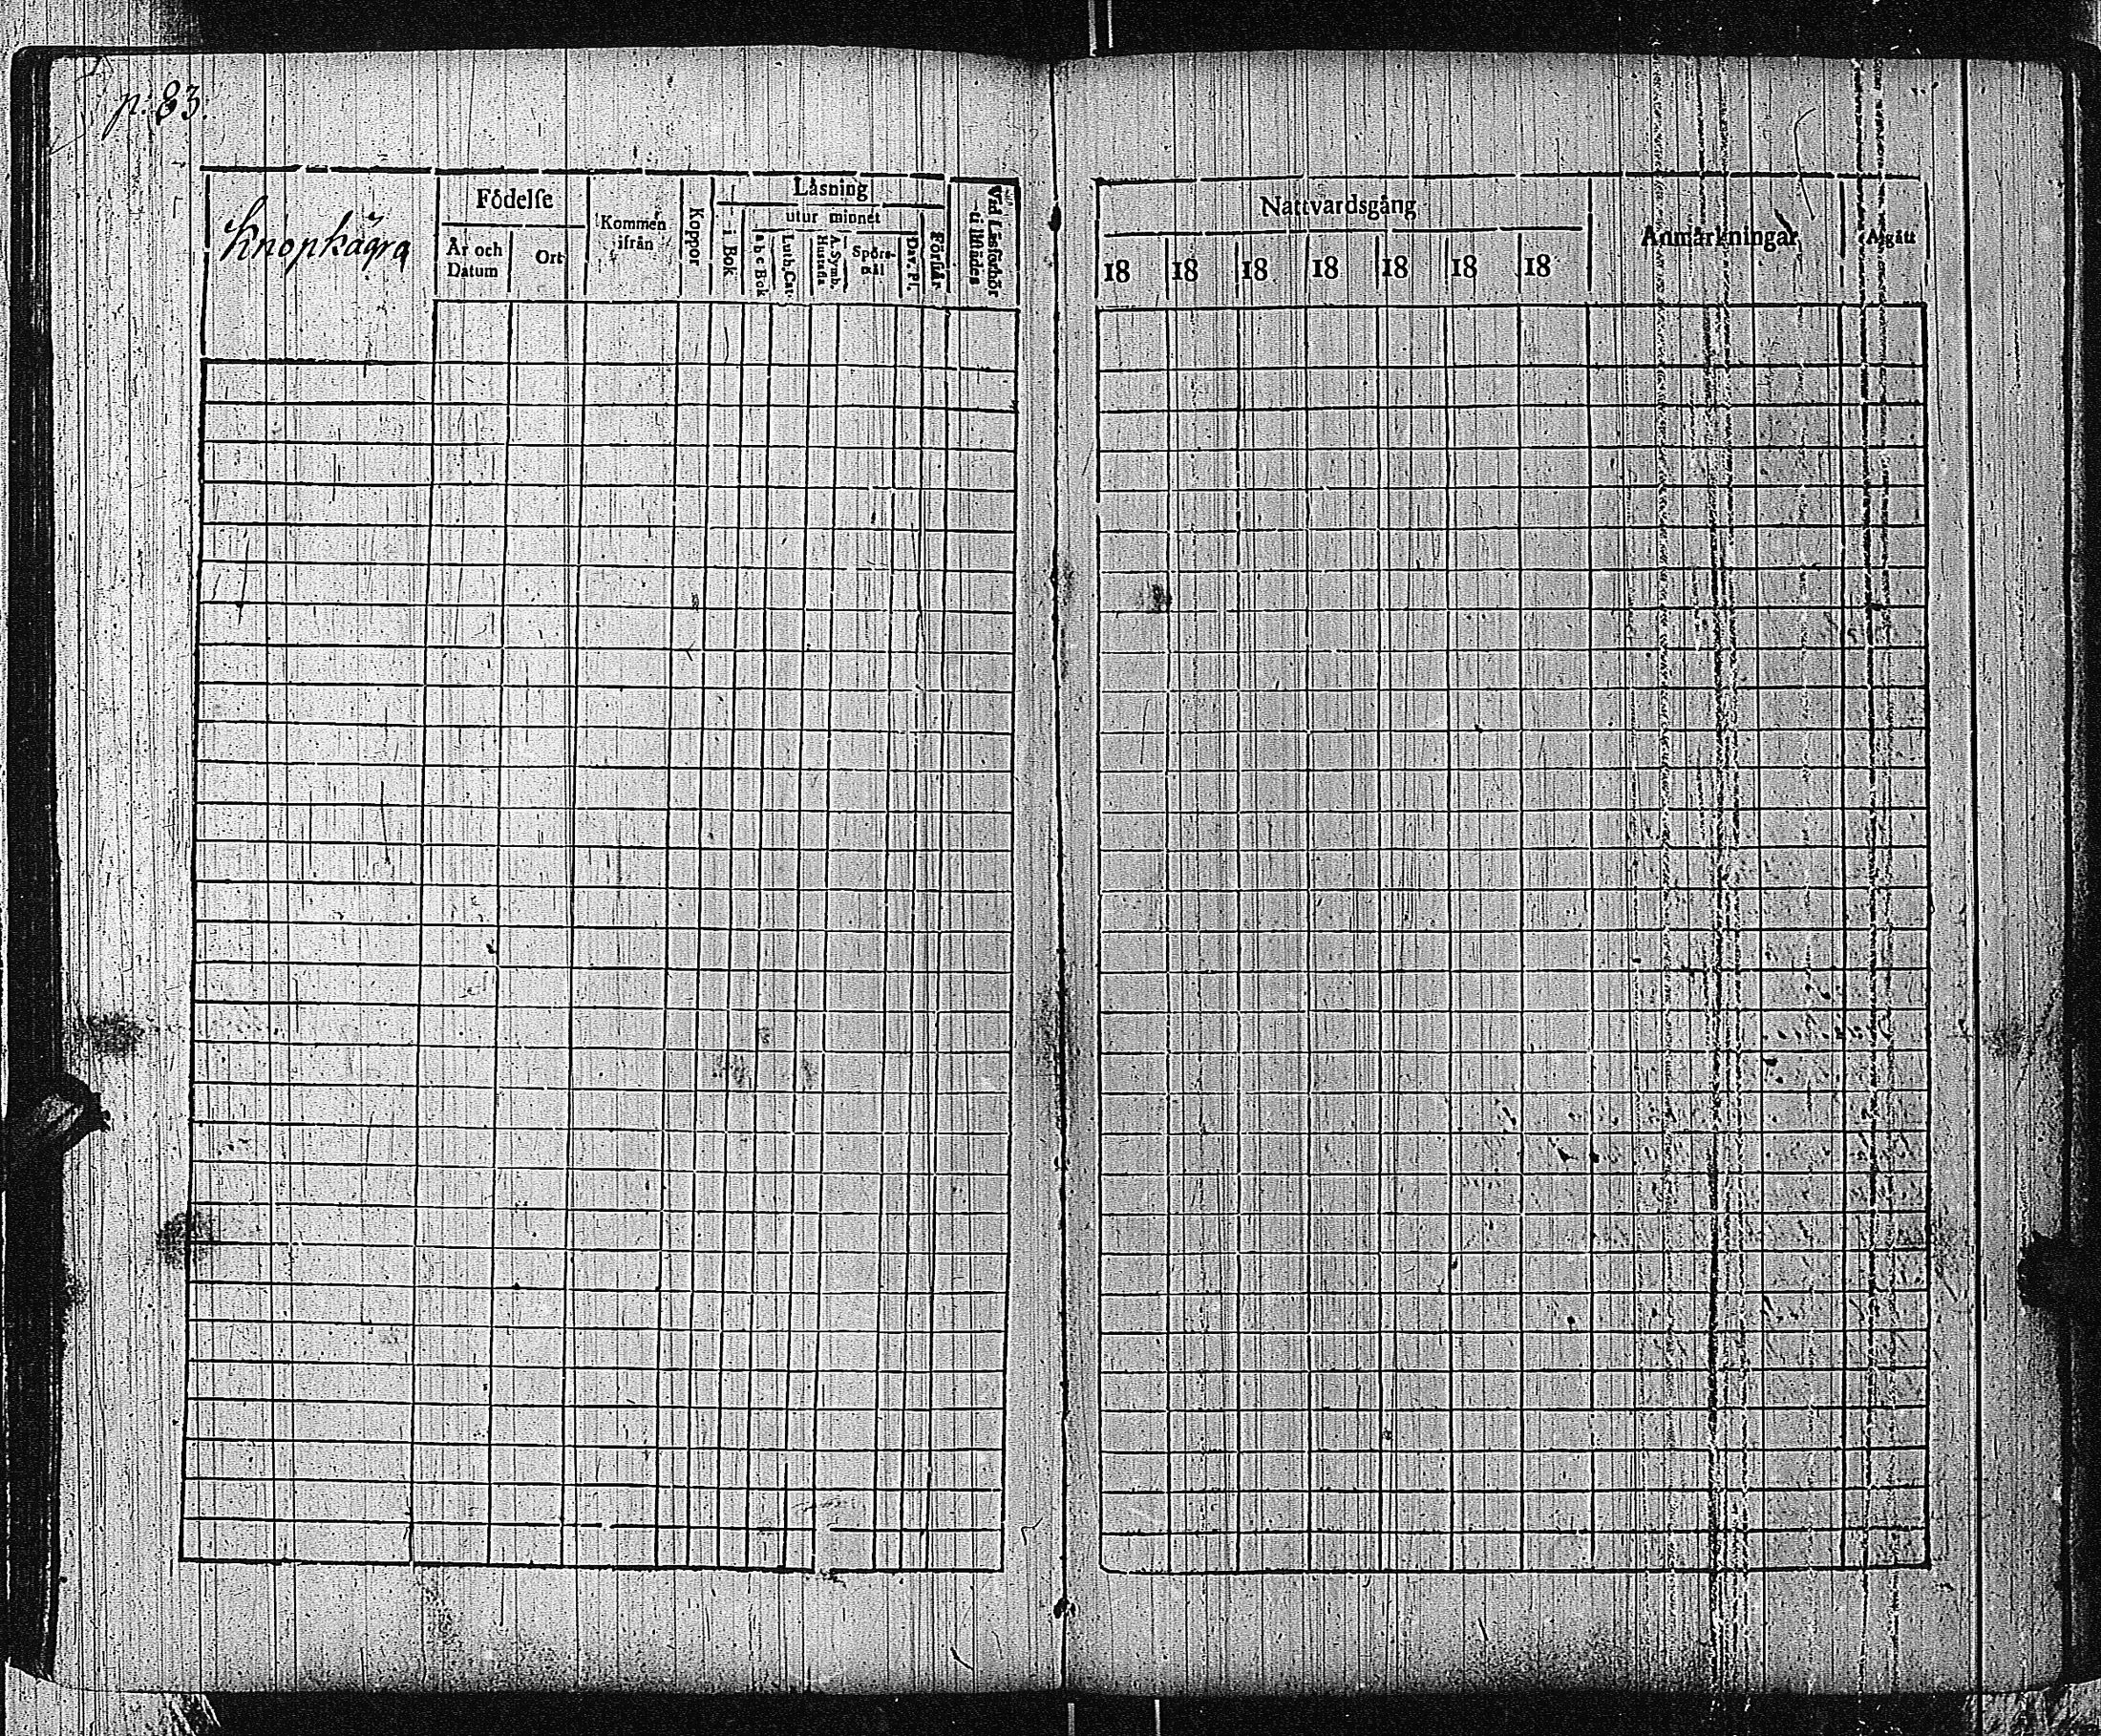 p. 83.
Knopkägra
Födelse
År och Datum
Ort
Kommen ifrån
Koppor
Läsning
i Bok
utur minnet
a b c Bok
Luth. Cat.
A. Symb. Hustafla
Spörs-mål
Dav. Ps.
Förstår
Vid Läsförhör tillstädes
Nattvardsgång
18 18 18 18 18 18 18
Anmärkningar
Afgått